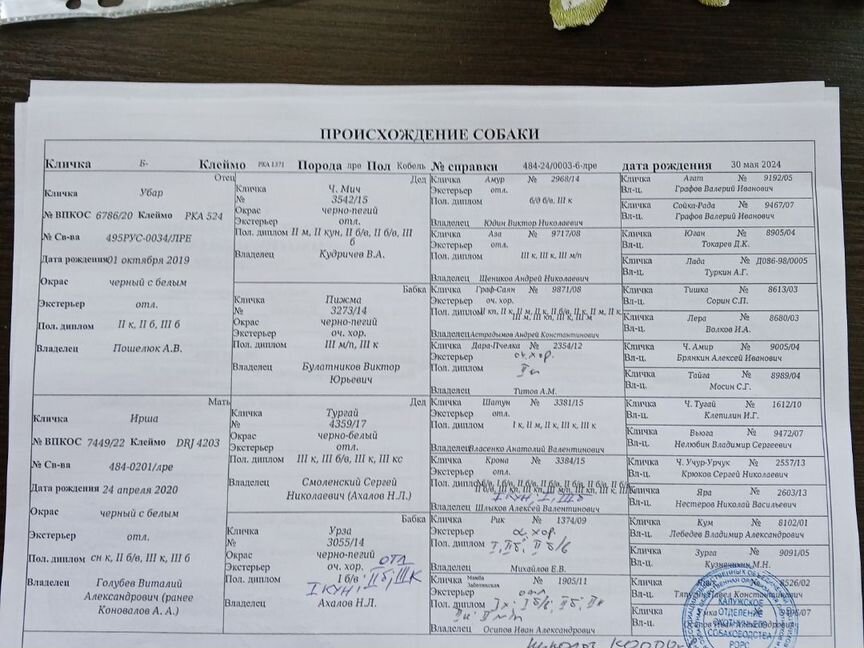 ПРОИСХОЖДЕНИЕ СОБАКИ
Кличка Б- Клеймо РКА 1371 Порода лре Пол Кобель № справки 484-24/0003-6-лре дата рождения 30 мая 2024
Отец
Кличка Убар
№ ВПКОС 6786/20 Клеймо РКА 524
№ Св-ва 495РУС-0034/ЛРЕ
Дата рождения 01 октября 2019
Окрас черный с белым
Экстерьер отл.
Пол. диплом II к, II б, III б
Владелец Пошелюк А.В.
Мать
Кличка Ирша
№ ВПКОС 7449/22 Клеймо DRJ 4203
№ Св-ва 484-0201/лре
Дата рождения 24 апреля 2020
Окрас черный с белым
Экстерьер отл.
Пол. диплом сн к, II б/в, III к, III б
Владелец Голубев Виталий
Александрович (ранее
Коновалов А. А.)
Дед
Кличка Ч. Мич
№ 3542/15
Окрас черно-пегий
Экстерьер отл.
Пол. диплом II м, II кун, II б/в, II б/в, III
б
Владелец Кудричев В.А.
Бабка
Кличка Пижма
№ 3273/14
Окрас черно-пегий
Экстерьер оч. хор.
Пол. диплом III м/п, III к
Владелец Булатников Виктор
Юрьевич
Дед
Кличка Тургай
№ 4359/17
Окрас черно-белый
Экстерьер отл.
Пол. диплом III к, III б/в, III к, III кс
Владелец Смоленский Сергей
Николаевич (Ахалов Н.Л.)
Бабка
Кличка Урза
№ 3055/14
Окрас черно-пегий
Экстерьер отл
Пол. диплом I б/в, II б, III к
I кун,
Владелец Ахалов Н.Л.
Кличка Амур № 2968/14
Экстерьер отл.
Пол. диплом б/д б/в, III к
Владелец Юдин Виктор Николаевич
Кличка Аза № 9717/08
Экстерьер отл.
Пол. диплом III к, III к, III м/п
Владелец Щеников Андрей Николаевич
Кличка Граф-Саян № 9871/08
Экстерьер оч. хор.
Пол. диплом
Владелец Астрадымов Андрей Константинович
Кличка Дара-Пчелка № 2354/12
Экстерьер оч. хор.
Пол. диплом
Владелец Титов А.М.
Кличка Шатун № 3381/15
Экстерьер отл.
Пол. диплом I к, II м, II к, III к, III к
Владелец Власенко Анатолий Валентинович
Кличка Крона № 3384/15
Экстерьер отл.
Пол. диплом
I кун, I, III б
Владелец Шлыков Алексей Валентинович
Кличка Рик № 1374/09
Экстерьер оч. хор.
Пол. диплом I, II б, II б/в
Владелец Михайлов Е.В.
Кличка № 1905/11
Экстерьер отл
Пол. диплом
Владелец Осипов Иван Александрович
Кличка Агат № 9192/05
Вл-ц. Графов Валерий Иванович
Кличка Сойка-Рада № 9467/07
Вл-ц. Графов Валерий Иванович
Кличка Юган № 8905/04
Вл-ц. Токарев Д.К.
Кличка Лада № Д086-98/0005
Вл-ц. Туркин А.Г.
Кличка Тишка № 8613/03
Вл-ц. Сорин С.П.
Кличка Лера № 8680/03
Вл-ц. Волков И.А.
Кличка Ч. Амир № 9005/04
Вл-ц. Брянкин Алексей Иванович
Кличка Тайга № 8989/04
Вл-ц. Мосин С.Г.
Кличка Ч. Тугай № 1612/10
Вл-ц. Клепилин И.Г.
Кличка Вьюга № 9472/07
Вл-ц. Нелюбин Владимир Сергеевич
Кличка Ч. Учур-Урчук № 2557/13
Вл-ц. Крюков Сергей Николаевич
Кличка Яра № 2603/13
Вл-ц. Нестеров Николай Васильевич
Кличка Кум № 8102/01
Вл-ц. Лебедев Владимир Александрович
Кличка Зурга № 9091/05
Вл-ц.
Кличка 8526/02
Вл-ц. Константинович
Кличка
Вл-ц.
КАЛУЖСКОЕ
ОТДЕЛЕНИЕ
ОХОТНИЧЬЕГО
СОБАКОВОДСТВА
РОРС